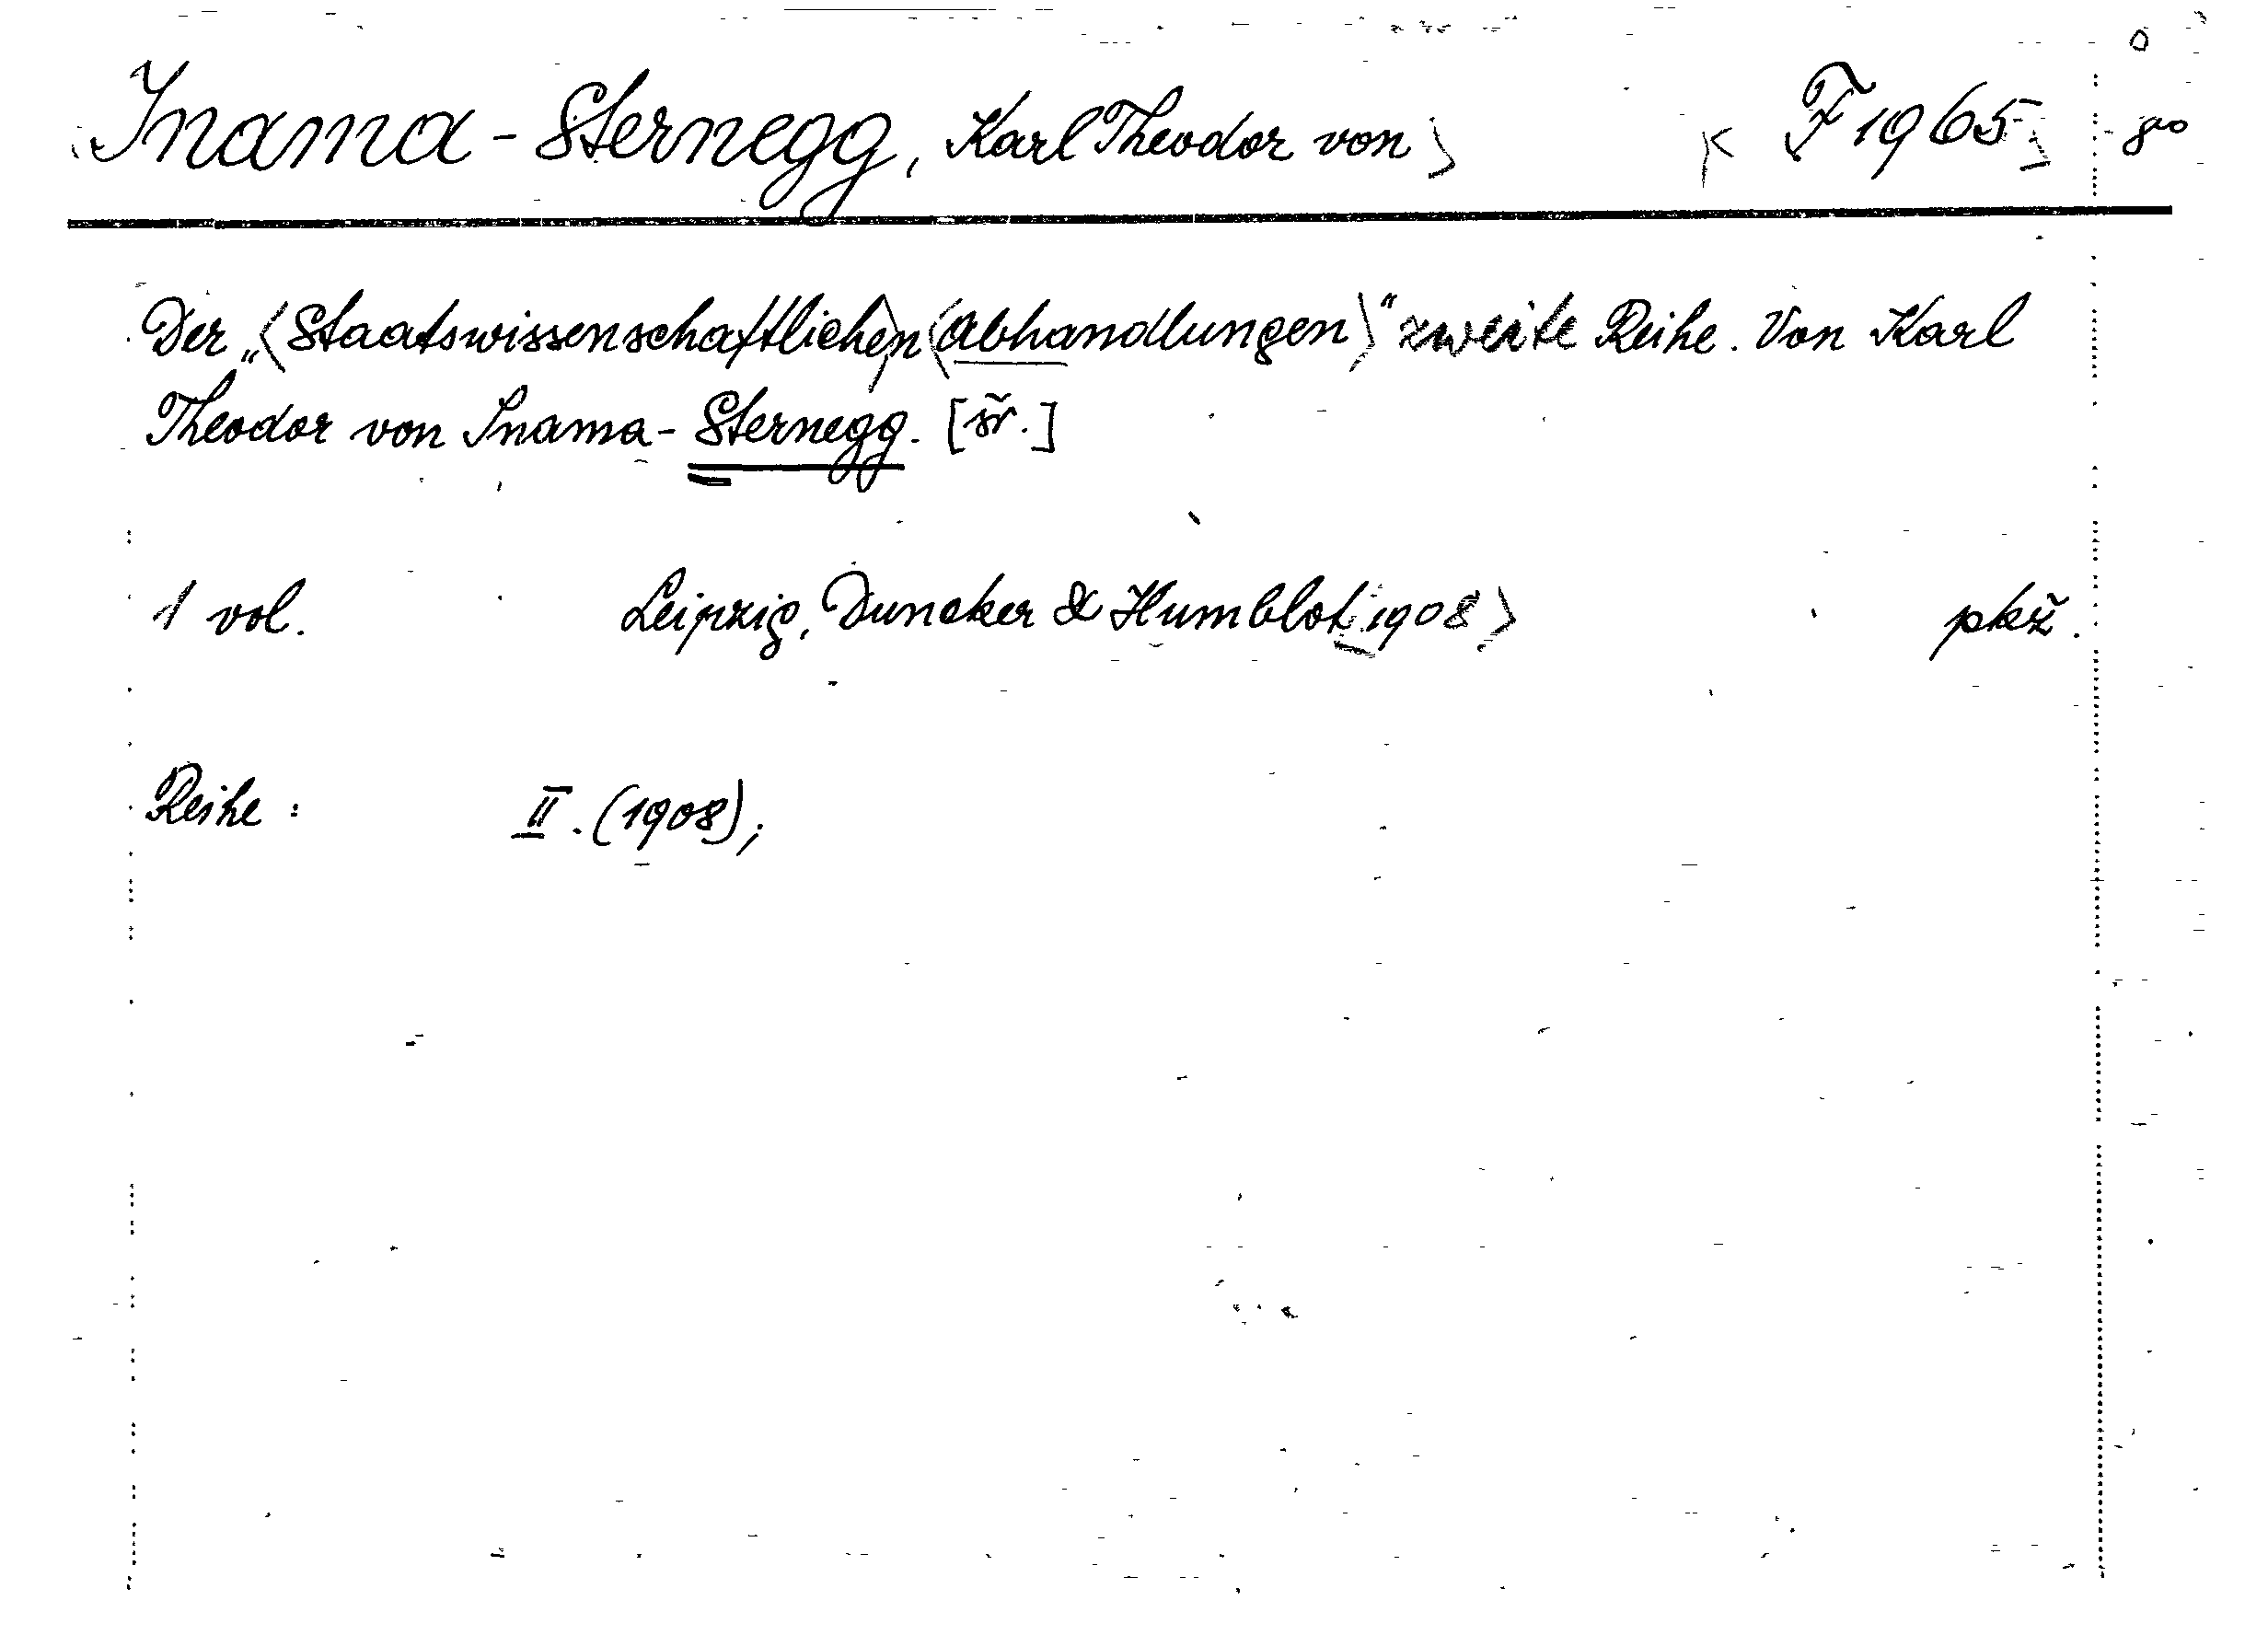 Inama-Sternegg, Karl Theodor von> <F 1965> 8vo
Der „<Staatswissenschaftlichen <Abhandlungen>“ zweite Reihe. Von Karl
Theodor von Inama-Sternegg. [šř.]
1 vol. Leipzig, Duncker & Humblot <1908> pkž.
Reihe: II. (1908),